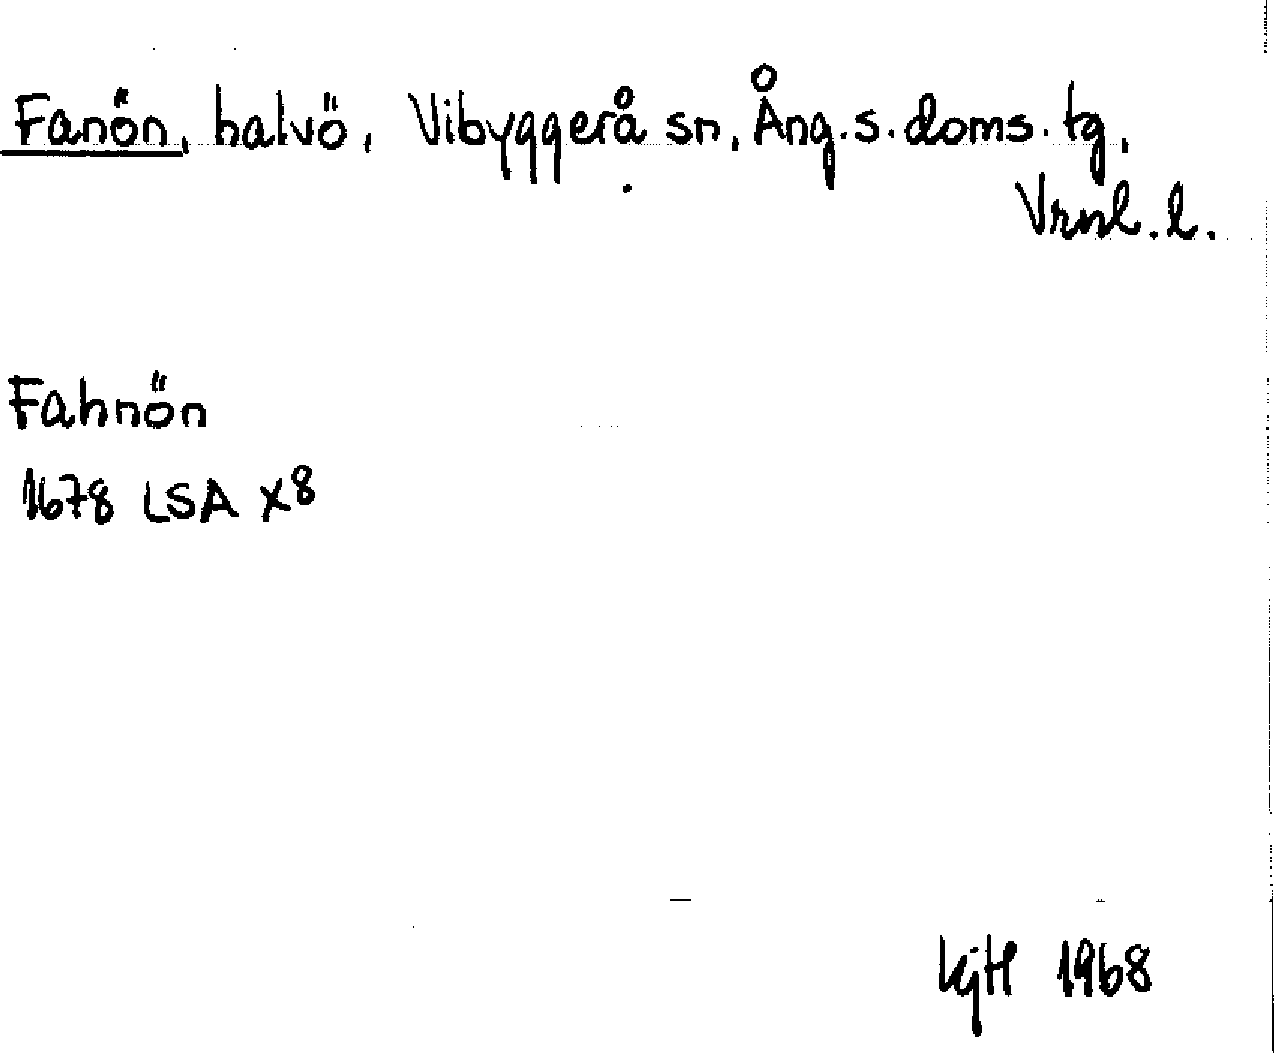 Fanön, halvö, Vibyggerå sn, Ång.s.doms.tg,
Vrnl.l.
Fahnön
1678 LSA X8
KjH 1968